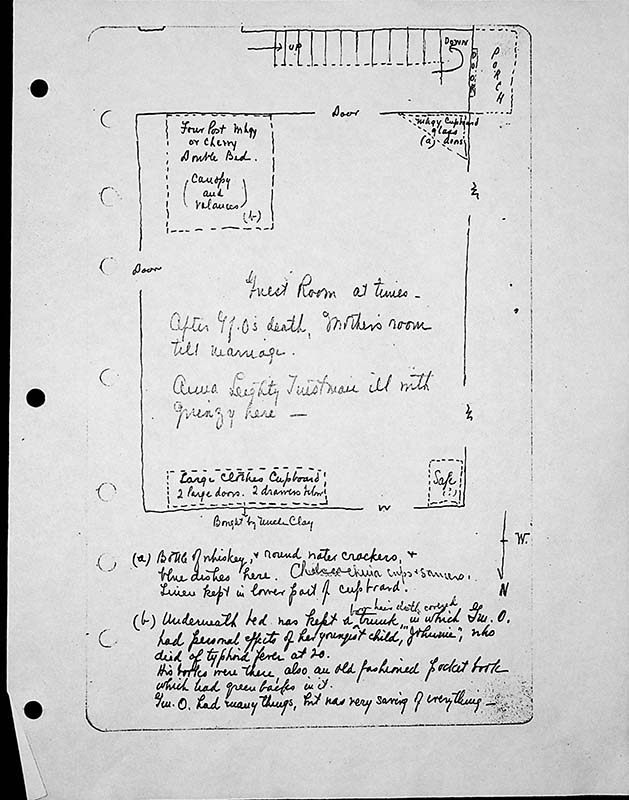 UP
DOWN
DOOR
PORCH
Door
Mhgy Cupboard
glass
(a) doors
Four Post Mhgy
or Cherry
Double Bed.
(Canopy
and
Valances)
(b)
W
Door
Guest Room at times -
After Gf. O's death, Mother's room
till marriage.
Anna Leighty Tustman ill with
here —
W
Large Clothes Cupboard
2 large doors. 2 drawers below
Safe
(?)
W
Bought by Uncle Clay
W
N
(a) Bottle of whiskey, & round water crackers, &
blue dishes here. china cups & saucers.
Linen kept in lower part of cupboard.
(b) Underneath bed was kept a trunk, in which Gm. O.
had personal effects of her youngest child, "Johnnie", who
died of typhoid fever at 20.
His books were there, also an old fashioned pocket book
which had greenbacks in it.
Gm. O. had many things, but was very saving of everything —